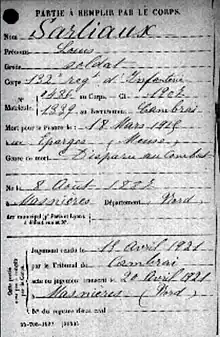 PARTIE À REMPLIR PAR LE CORPS.
Nom Sarliaux
Prénoms Louis
Grade Soldat
Corps 132e regt d'Infanterie
N° au Corps. — Cl. 1907
Matricule. 1339 au Recrutement Cambrai
Mort pour la France le 18 Mars 1915
aux Eparges (Meuse)
Genre de mort Disparu au combat
Né le 8 Août 1887
à Masnières Département Nord
Arr. municipal (pr Paris et Lyon),
à défaut rue et N°.
Jugement rendu le 15 Avril 1921
par le Tribunal de Cambrai
acte ou jugement transcrit le 20 Avril 1921
à Masnières (Nord)
N° du registre d'état civil